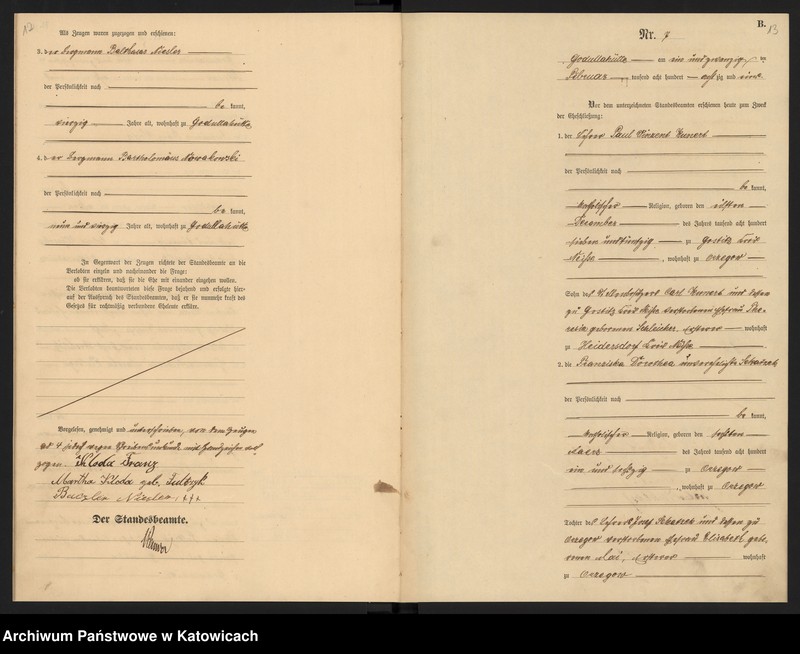 12
Als Zeugen waren zugezogen und erschienen:
3. der Bergmann Balthasar Niesler
der Persönlichkeit nach
be kannt,
vierzig Jahre alt, wohnhaft zu Godullahütte
4. der Bergmann Bartholomäus Nowakowski
der Persönlichkeit nach
be kannt,
neun und vierzig Jahre alt, wohnhaft zu Godullahütte
In Gegenwart der Zeugen richtete der Standesbeamte an die
Verlobten einzeln und nacheinander die Frage:
ob sie erklären, daß sie die Ehe mit einander eingehen wollen.
Die Verlobten beantworteten diese Frage bejahend und erfolgte hier-
auf der Ausspruch des Standesbeamten, daß er sie nunmehr kraft des
Gesetzes für rechtmäßig verbundene Eheleute erkläre.
Vorgelesen, genehmigt und unterschrieben, von dem Zeugen
ad 4 jedoch wegen Schreibensunkunde mit Handzeichen ver-
zogen. Kloda Franz
Martha Kloda geb.
Niesler, +++
Der Standesbeamte.
B.
13
Nr. 7
Godullahütte am ein und zwanzig ten
Februar tausend acht hundert acht zig und
Vor dem unterzeichneten Standesbeamten erschienen heute zum Zweck
der Eheschließung:
1. der Lehrer Paul Vinzent
der Persönlichkeit nach
be kannt,
katholischer Religion, geboren den elften
Dezember des Jahres tausend acht hundert
sieben und fünfzig zu Gostitz Kreis
Neisse, wohnhaft zu Orzegow
Sohn des Stellenbesitzers Carl und dessen
zu Gostitz Kreis Neisse verstorbenen Ehefrau The-
resia geborenen Schleicher, ersterer wohnhaft
zu Heidersdorf Kreis Neisse
2. die Franziska Dorothea unverehelichte
der Persönlichkeit nach
be kannt,
katholischer Religion, geboren den sechsten
des Jahres tausend acht hundert
ein und sechzig zu Orzegow
, wohnhaft zu Orzegow
Tochter des Lehrers Josef und dessen zu
Orzegow verstorbenen Ehefrau Elisabeth gebo-
renen, ersterer wohnhaft
zu Orzegow
Archiwum Państwowe w Katowicach